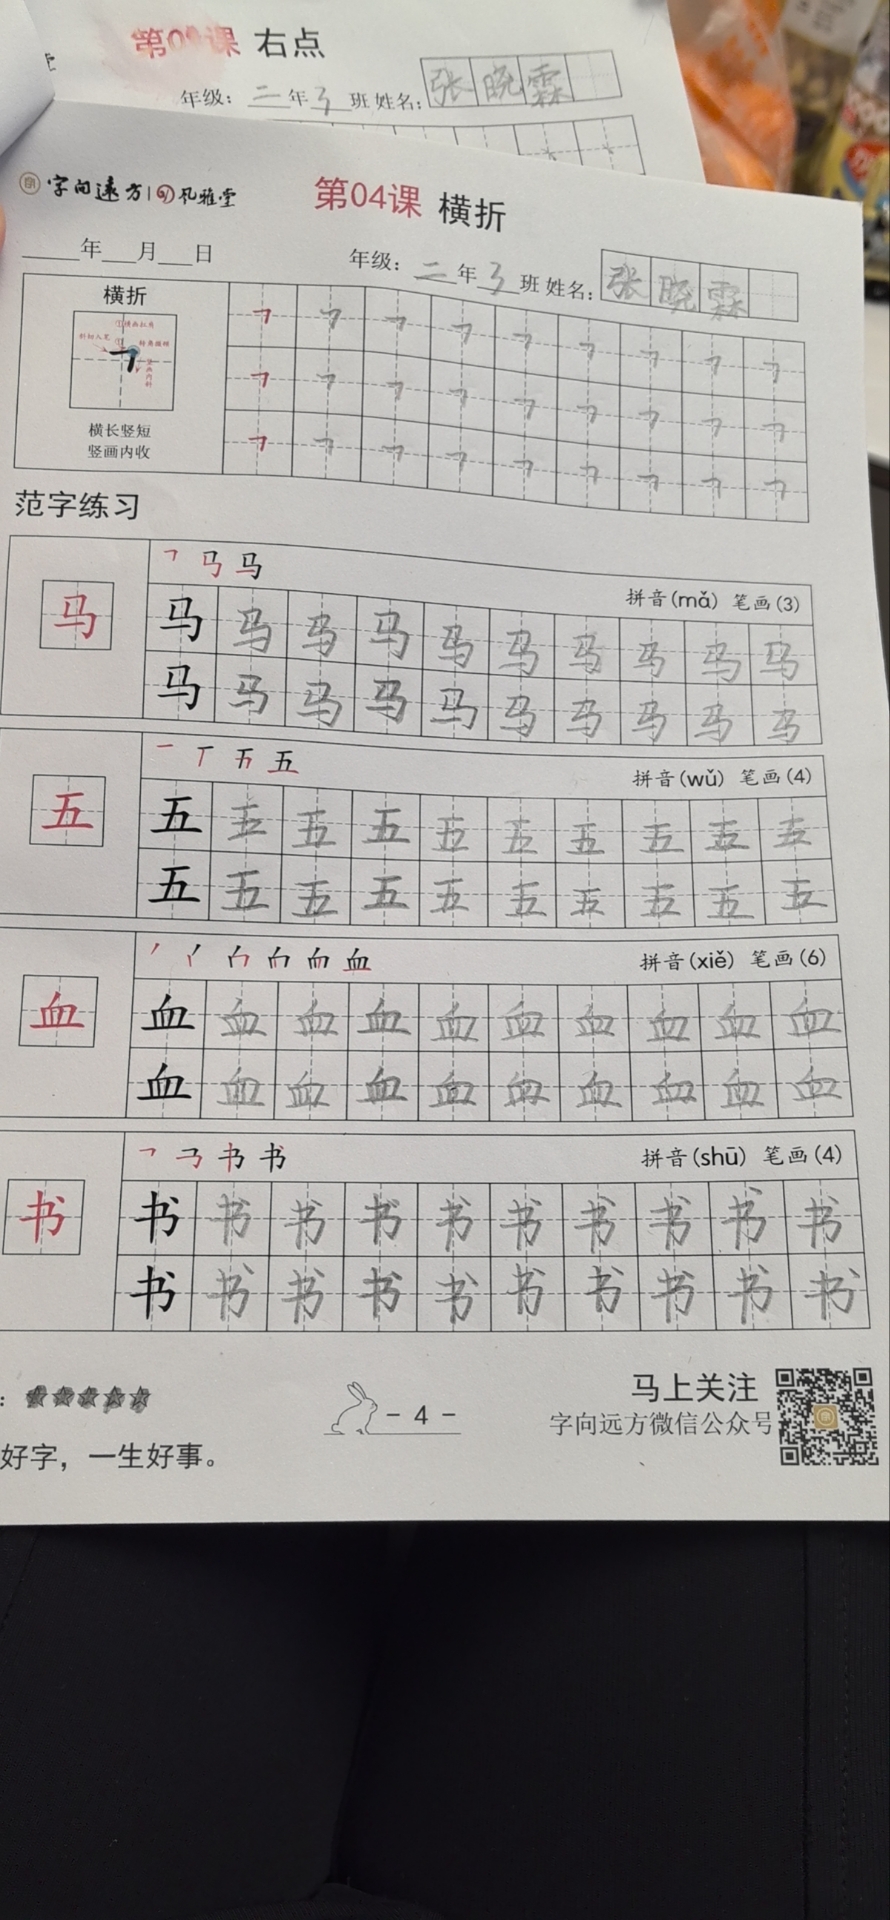 第0课 右点
年级：二年3班 姓名：张晓霖
字向远方 孔雅堂
第04课 横折
年 月 日 年级：二年3班 姓名：张晓霖
横折
横长竖短
竖画内收
范字练习
马 马
拼音(mǎ) 笔画(3)
马 马 马 马 马 马 马 马 马 马 马
马 马 马 马 马 马 马 马 马 马
五
拼音(wǔ) 笔画(4)
五 五 五 五 五 五 五 五 五 五 五
五 五 五 五 五 五 五 五 五 五
血
拼音(xiě) 笔画(6)
血 血 血 血 血 血 血 血 血 血 血
血 血 血 血 血 血 血 血 血 血
书
拼音(shū) 笔画(4)
书 书 书 书 书 书 书 书 书 书 书
书 书 书 书 书 书 书 书 书 书
：★★★★★
- 4 -
马上关注
字向远方微信公众号
好字，一生好事。